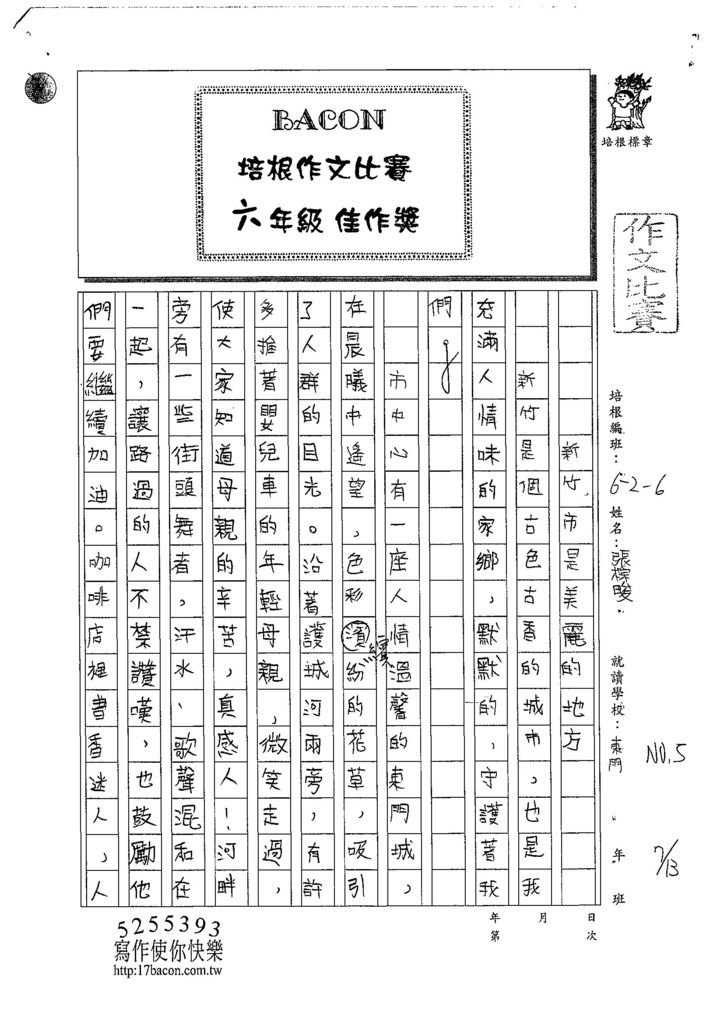 BACON
培根作文比賽
六年級 佳作獎
培根標章
作文比賽
培根編班：6-2-6 姓名：張棕畯 就讀學校：東門 年 班
NO.5
7/13
新竹市是美麗的地方
新竹是個古色古香的城市，也是我
充滿人情味的家鄉，默默的，守護著我
們。
市中心有一座人情溫馨的東門城，
在晨曦中遙望，色彩濱紛的花草，吸引
繽
了人群的目光。沿著護城河兩旁，有許
多推著嬰兒車的年輕母親，微笑走過，
使大家知道母親的辛苦，真感人！河畔
旁有一些街頭舞者，汗水、歌聲混和在
一起，讓路過的人不禁讚嘆，也鼓勵他
們要繼續加油。咖啡店裡書香迷人，人
年 月 日
第 次
5255393
寫作使你快樂
http:17bacon.com.tw